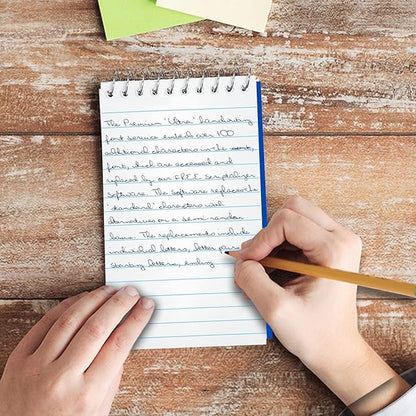 The Premium 'Ultra' handwriting
font service embeds over 100
additional characters in the
font, which are accessed and
replaced by our FREE Scriptalizer
software. The software replaces the
'standard' characters with
alternatives on a semi-random
basis. The replacements include
individual letters, letter pairs
starting letters, ending